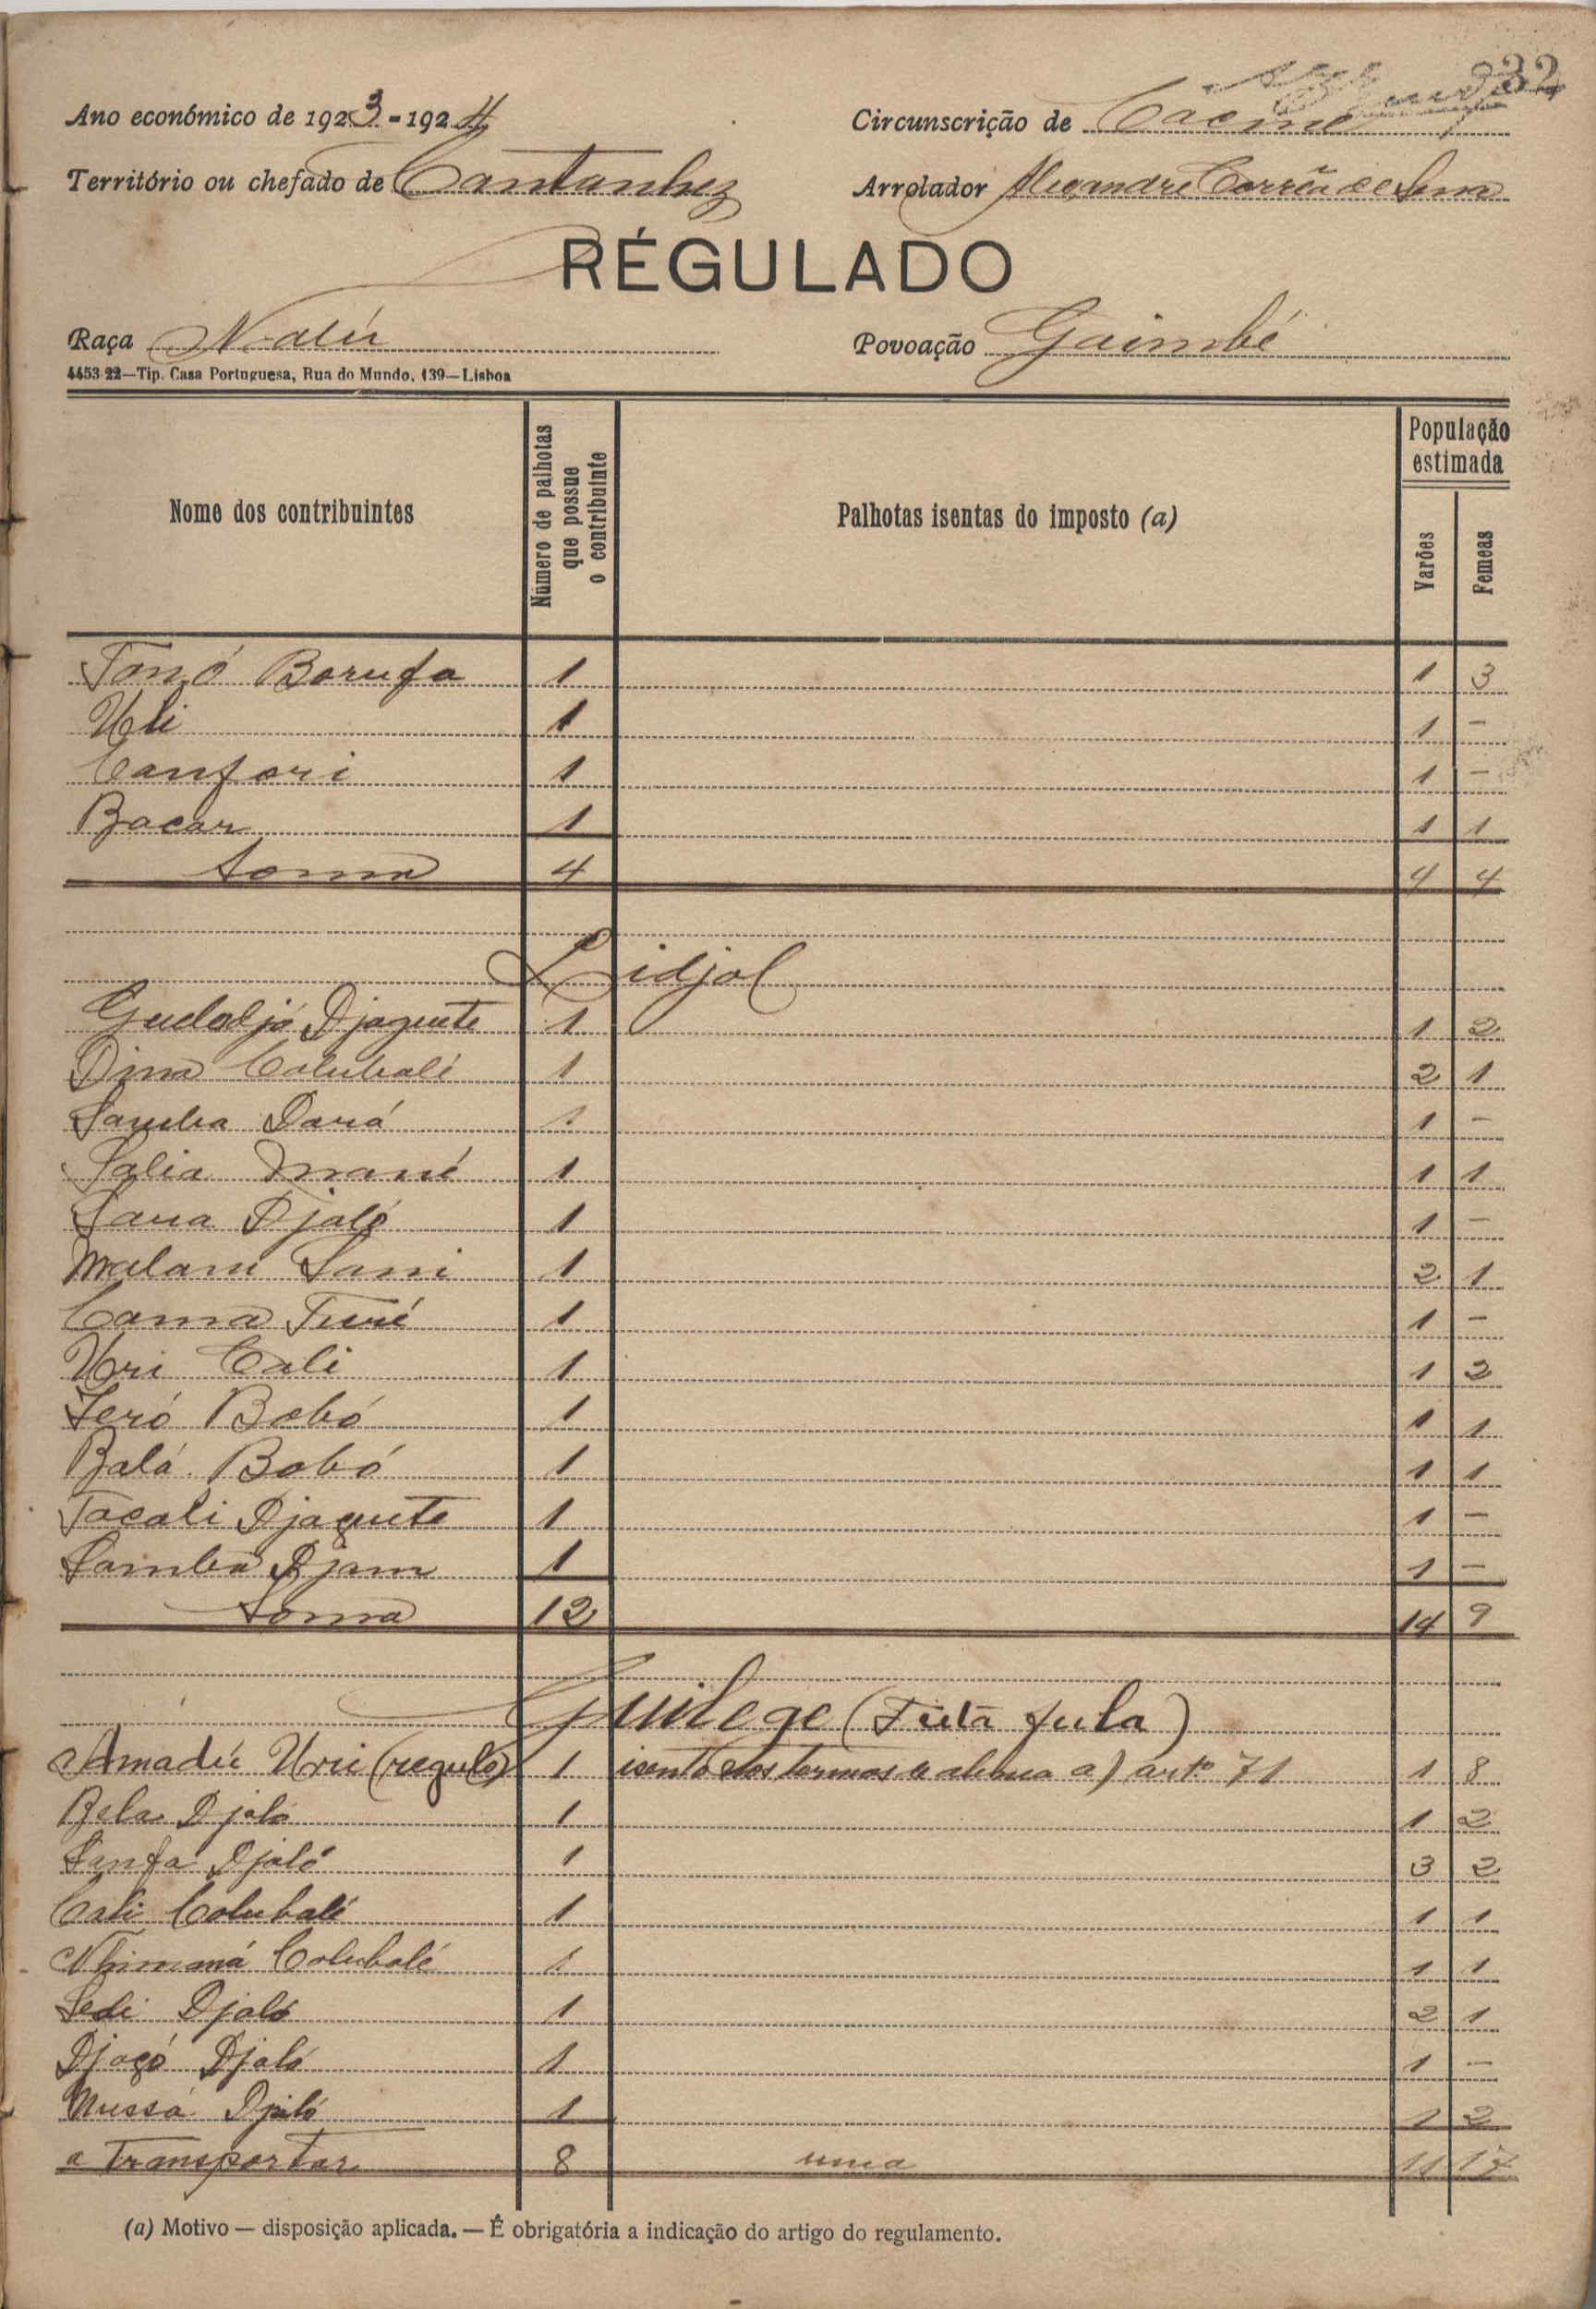 32
Ano económico de 1923-1924 Circunscrição de Cacine
Território ou chefado de Cantanhez Arrolador Alexandre Corrêa de Sena
RÉGULADO
Raça Nalú Povoação Gaimbé
4453-22—Tip. Casa Portuguesa, Rua do Mundo, 139—Lisboa
Nome dos contribuintes Número de palhotas que possue o contribuinte Palhotas isentas do imposto (a) População estimada Varões Femeas
Tonó Borufa 1 1 3
Uli 1 1 -
Canfori 1 1 -
Bacar 1 1 1
Soma 4 4 4
Lidjol
Gudadjá Djaquete 1 1 2
Dima Colubali 1 2 1
Samba Dará 1 1 -
Salia Mané 1 1 1
Sara Djaló 1 1 -
Malam Sani 1 2 1
Cama Turé 1 1 -
Uri Cali 1 1 2
Seró Bobó 1 1 1
Balá Bobó 1 1 1
Tacali Djaquete 1 1 -
Samba Djam 1 1 -
Soma 12 14 9
Guilege (Futa fula)
Amadú Uri (regulo) 1 isento nos termos da alinea a) artº 71 1 8
Bela Djaló 1 1 2
Sanfa Djaló 1 3 2
Cali Colubali 1 1 1
Nhimmá Colubalé 1 1 1
Sedi Djaló 1 2 1
Djogó Djaló 1 1 -
Mussá Djaló 1 1 2
a Transportar 8 uma 11 17
(a) Motivo — disposição aplicada. — É obrigatória a indicação do artigo do regulamento.